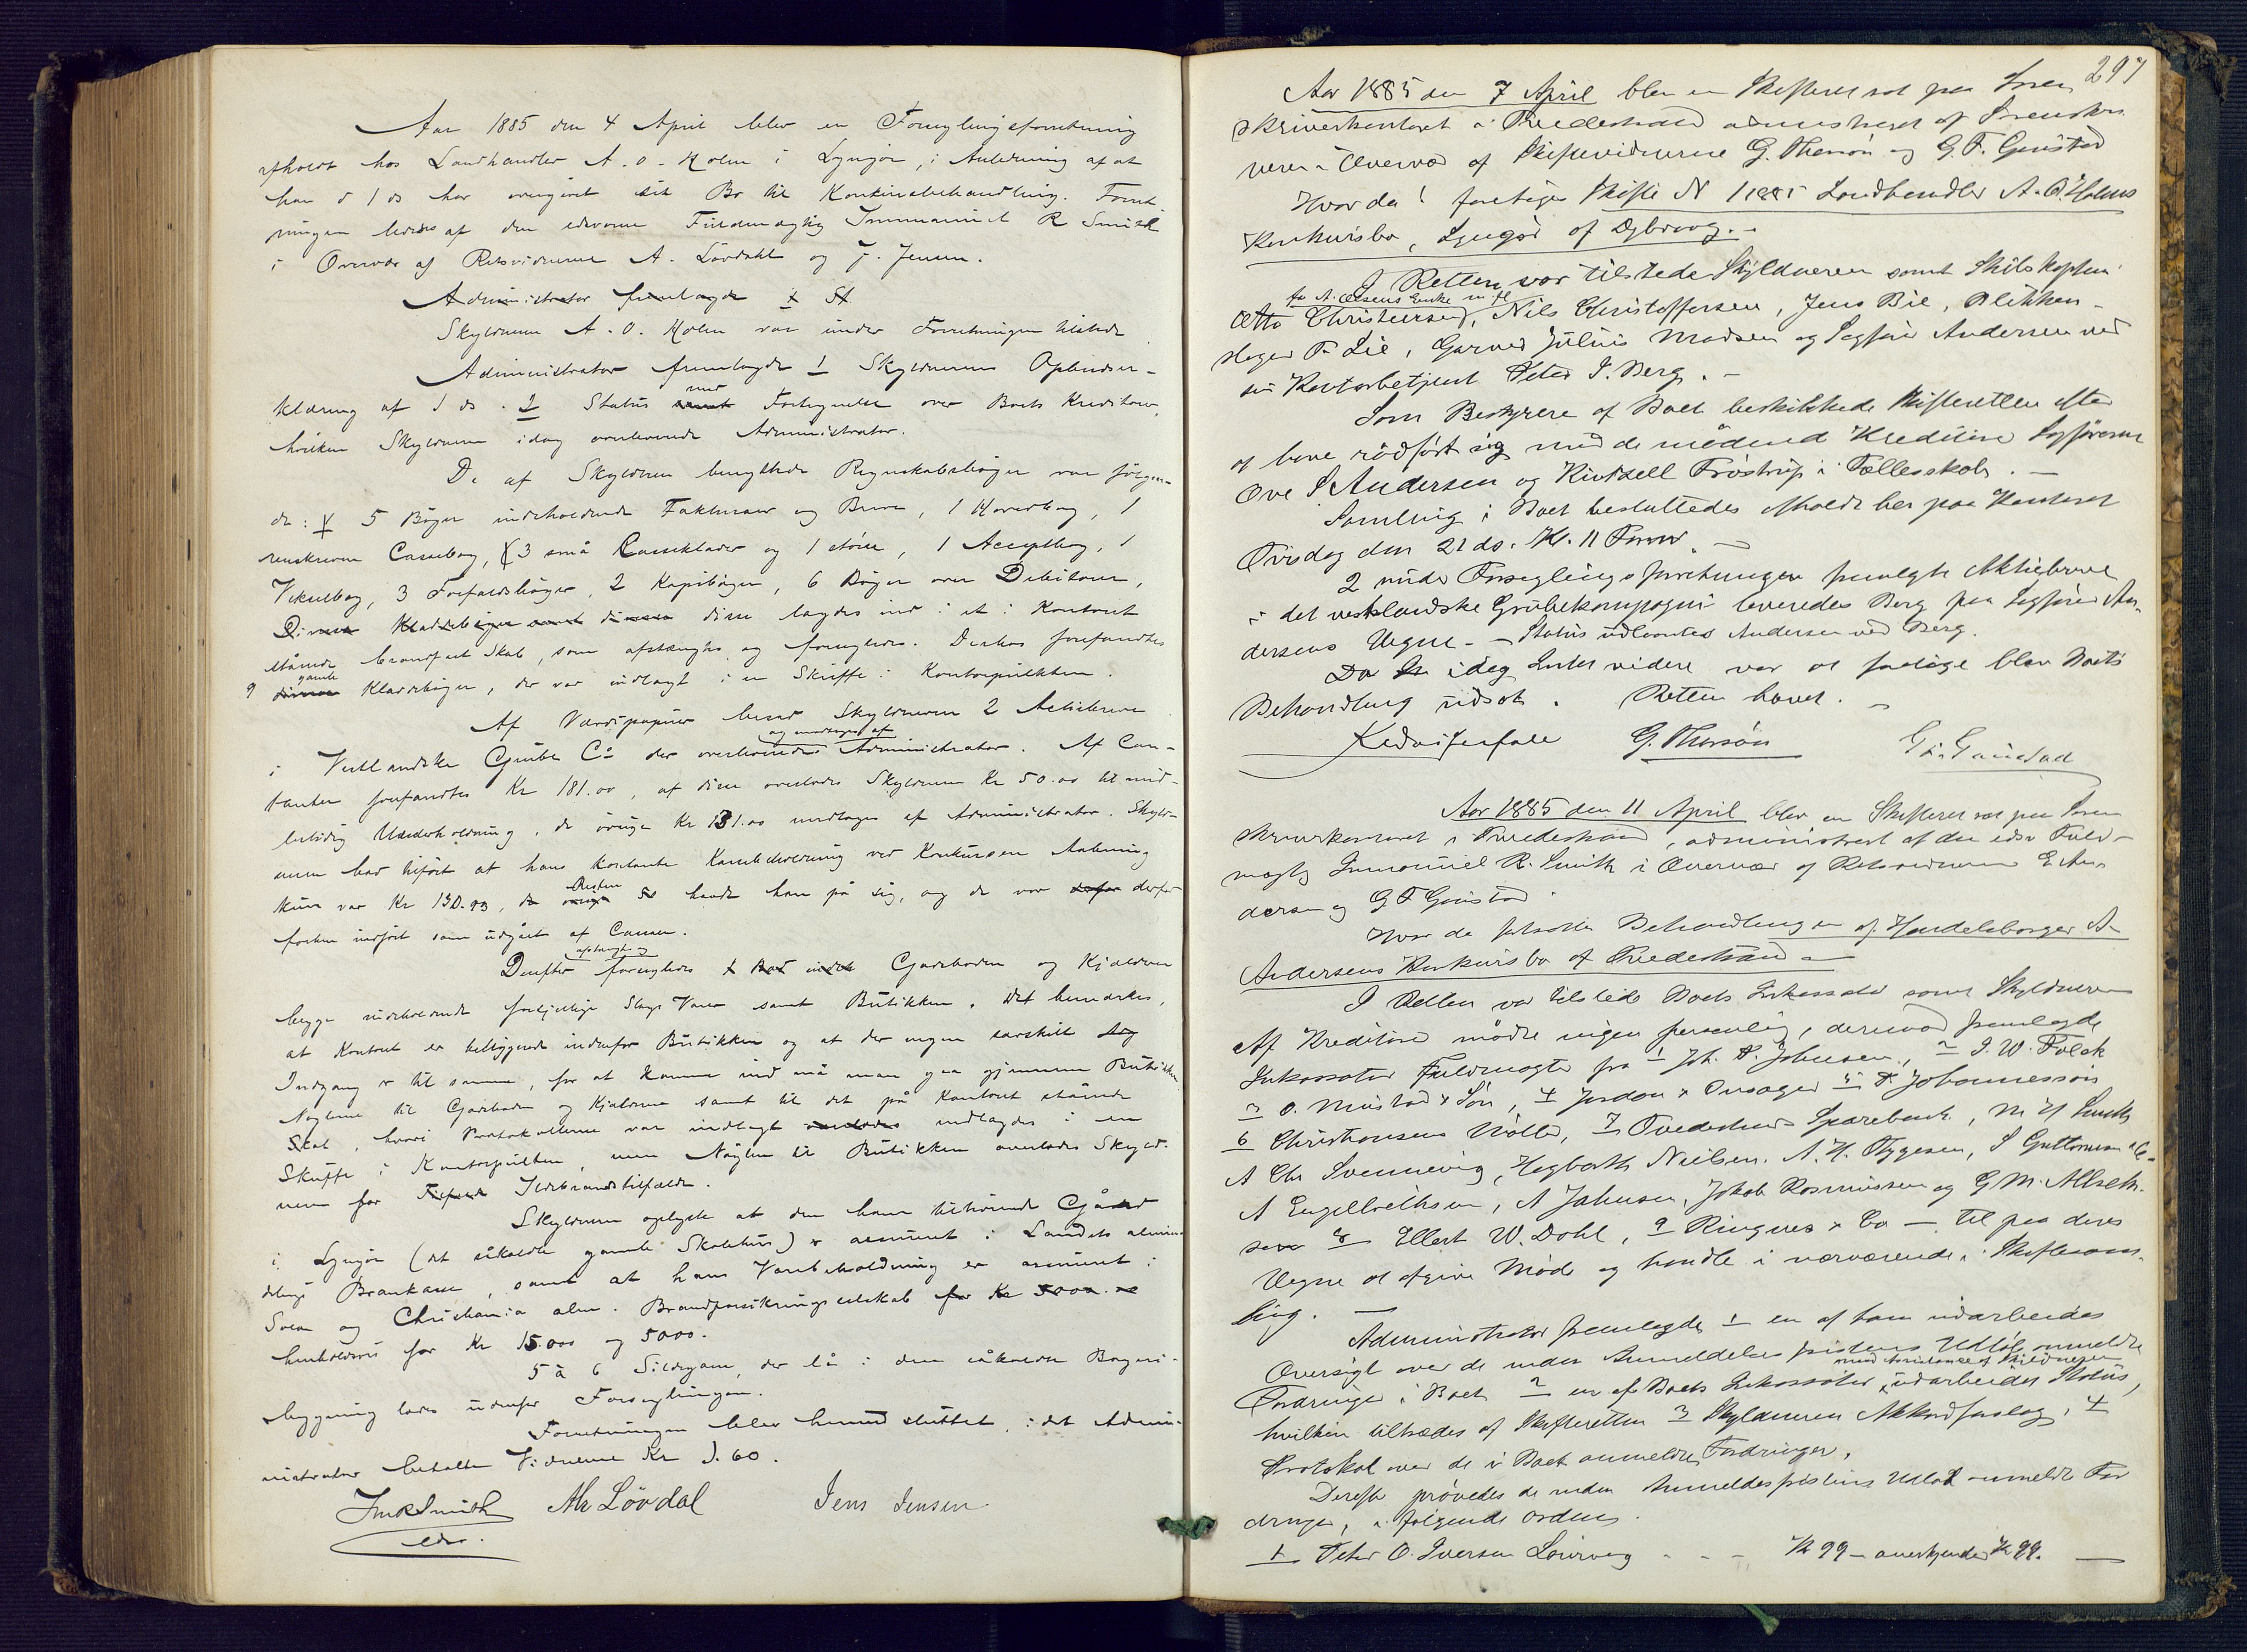 Aar 1885 den 4 April blev en Forseglingsforretning
afholdt hos Landhandler A. O. Holm i Lyngør, i Anledning af at
han d 1 ds har overgivet sit Bo til Konkursbehandling. Forret-
ningen lededes af den edsvorne Fuldmægtig Immanuel R Smith
i Overvær af Retsvidnerne A. Løvdahl og J. Jensen.
Administrator fremlagde 1 St
Skyldneren A. O. Holm var under Forretningen tilstede
Administrator fremlagde 1 Skyldnerens Opbudser-
klæring af 1 ds. 2 Status samt med Fortegnelse over Boets Kreditorer,
hvilken Skyldneren idag overleverede Administrator.
De af Skyldneren benyttede Regnskabsbøger var følgen-
de: 5 Bøger indeholdende Fakturaer og Breve, 1 Hovedbog, 1
renskreven Cassebog, 3 små Cassekladder og 1 større, 1 Acceptbog, 1
Vekselbog, 3 Forfaldsbøger, 2 Kopibøger, 6 Bøger over Debitorer,
Diverse Kladdebøger samt disse lagdes ind i et i Kontoret
stående brandfrit Skab, som afstængtes og forsegledes. Derhos forefandtes
9 diverse gamle Kladdebøger, der var indlagt i en Skuffe i Kontorpulten.
Af Værdipapirer besad Skyldneren 2 Actiebreve
i Vestlandske Grube Co der overleveredes og modtoges af Administrator. Af Con-
tanter forefandtes Kr 181.00, af disse overlodes Skyldneren Kr 50.00 til mid-
lertidig Underholdning, de øvrige Kr 131.00 modtoges af Administrator. Skyld-
neren har tilført at hans kontante Kassebeholdning ved Konkursens Aabning
kun var Kr 130.93, de øvrige Resten havde han på sig, og de var derfor
forhen indført som udgået af Cassen.
Derefter afstængtes og forsegledes Gadeboden og Kjælderen
begge indeholdende forskjellige Slags Varer samt Butikken. Det bemærkes,
at Kontoret er beliggende indenfor Butikken og at der ingen særskilt
Indgang er til samme, for at komme ind må man gaa gjennem Butikken
Nøglerne til Gadeboden og Kjælderne samt til det på Kontoret stående
Skab, hvori Protokollerne var indlagt indlagdes i en
Skuffe i Kontorpulten, men Nøglen til Butikken overlodes Skyld-
neren for Ildebrandstilfælde.
Skyldneren oplyste at den ham tilhørende Gård
i Lyngør (det såkaldte gamle Skolehus) er assureret i Landets almin-
delige Brankasse, samt at hans Varebeholdning er assureret i
Svea og Christiania alm. Brandforsikringsselskab for Kr 5000.
henholdsvis for Kr 15.000 og 5000.
5 à 6 Sildegarn, der lå i den såkaldte Bageri-
bygning lodes udenfor Forseglingen.
Forretningen blev hermed sluttet, idet Admi-
nistrator betalte Vidnerne Kr 1.60.
Im R Smith Ah Løvdal Jens Jensen
edsv.
297
Aar 1885 den 7 April blev en Skifteret sat paa Soren-
skriverkontoret i Tvedestrand administreret af Sorenskri-
veren i Overvær af Skiftevidnerne G. Thersøn og G. F. Gjeustad
Hvor da! foretoges Skifte N 1 1885 Landhandler A. O. Holms
Konkursbo, Lyngør af Dybvaag.-
I Retten var tilstede Skyldneren samt Skibskaptein
Otto Christensen, for A. Olsens Enke Nils Christoffersen, Jens Bie, Blikken-
slager Lie, Garver Julius Madsen og Sagfører Andersen ved
sin Kontorbetjent Peter I. Berg. -
Som Bestyrere af Boet beskikkede Skifteretten efter
at have rådført sig med de mødende Kreditorer Sagførerne
Ove Andersen og Frøstrup i Fællesskab. -
Samling i Boet besluttedes afholdt her paa Kontoret
Tirsdag den 21 ds. Kl. 11 Form. -
2 under Forseglingsforretningen fremlagte Aktiebreve
i det vestlandske Grubekompagni leveredes Berg paa Sagfører An-
dersens Vegne. - Status udlaantes Andersen ved Berg.
Da idag Intet videre var at foretage blev Boets
Behandling udsat. Retten hævet. -
G. Thersøn
Aar 1885 den 11 April blev en Skifteret sat paa Soren
skriverkontoret i Tvedestrand, administreret af den edsv Fuld-
mægtig Immanuel R. Smith i Overvær af Retsvidnerne E An-
dersen og G F Gjeustad
Hvor da fortsattes Behandlingen af Handelsborger A.
Andersens Konkursbo af Tvedestrand -
I Retten var tilstede Boets Inkassator samt Skyldneren
Af Kreditorer mødte ingen personlig, derimod fremlagde
Inkassator Fuldmagter fra 1 Joh. Johnsen, 2 I. W. Falck
3 O. Mustad & Søn, 4 Jordan & 5 Johannessøn
6 Christiansens Mølle, 7 Tvedestrands Sparebank, M H Smith
A Chr Svennevig, Hagbarth Nielsen. N. H. Thygesen, S Guttormsen
A Engelbrethsen, A Johnsen, Jakob Rasmussen og G M.
sen 8 Ellert W. Dahl, 9 Ringnes & Co - til paa deres
Vegne at afgive Møde og handle i nærværende Skiftesam-
ling.
Administrator fremlagde 1 en af ham udarbeidet
Oversigt over de inden Anmeldelsesfristens Udløb anmeldte
Fordringer i Boet 2 en af Boets Inkassator, med Assistance af Skyldneren udarbeidet Status,
hvilken tiltrædes af Skifteretten 3 Skyldneren Akkordforslag, 4
Protokol over de i Boet anmeldte Fordringer.
Derefter prøvedes de inden Anmeldelsesfristens Udløb anmeldte For
dringer, i følgende Orden.
1 Peter O. Iversen Laurvig - - - Kr 99 - anerkjendes Kr 99. -